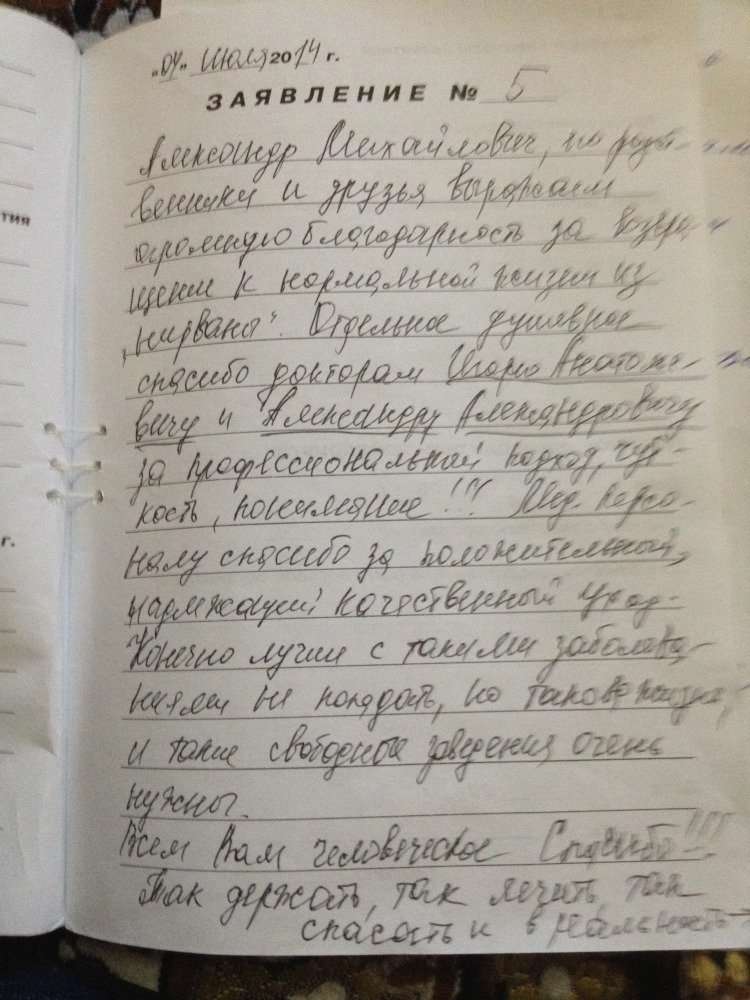 "04" июля 2014 г.
ЗАЯВЛЕНИЕ № 5
Александр Михайлович,
венники и друзья выражаем
огромную благодарность за возвра
щение к нормальной жизни из
„нирваны". Отдельное душевное
спасибо докторам Игорю Анатолье-
вичу и Александру Александровичу
за профессиональный подход, чут-
кость, понимание!!! Мед. персо-
налу спасибо за положительный,
надлежащий качественный уход.
Конечно лучше с такими заболева-
ниями не попадать, но такова жизнь,
и такие свободные заведения очень
нужны.
Всем Вам человеческое Спасибо!!!!
Так держать, так лечить, так
спасать и в реальность
тия
г.